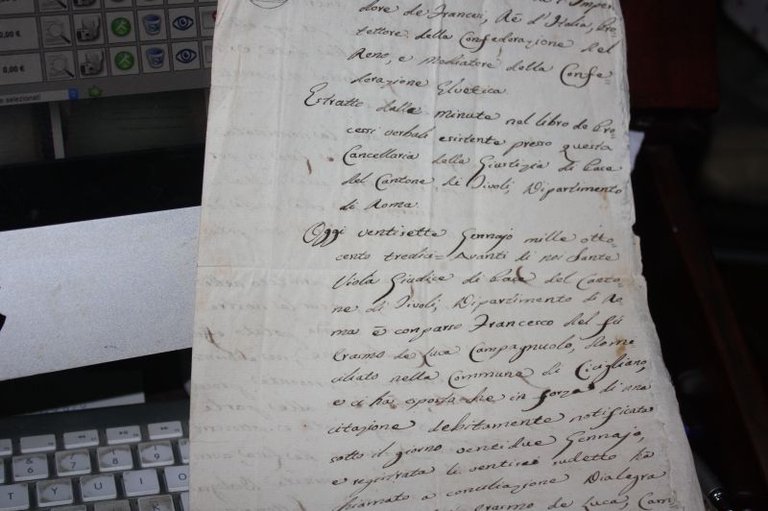 0,00 €
0,00 €
selezionati
dore de Francesi, Rè d'Italia, Pro-
tettore della Confedorazione del
Reno, e Mediatore della Confe-
derazione Elvetica
Estratto dalle minute nel libro de Pro-
cessi verbali esistente presso questa
Cancellaria della Giustizia di Pace
del Cantone di Tivoli, Dipartimento
di Roma
Oggi ventisette Gennajo mille otto-
cento tredici = Avanti di noi Sante
Viola Giudice di Pace del Canto-
ne di Tivoli, Dipartimento di Ro-
ma è comparso Francesco del fù
Erasmo de Luca Campagnuolo, domi
ciliato nella Commune di Ciciliano,
e ci ha esposto che in forza di una
citazione debitamente notificata
sotto il giorno ventidue Gennajo,
e registrata li ventitrè sudetto ha
chiamato a conciliazione Dialegra
Erasmo de Luca, Cam
6 7 8 9
T Y U I O